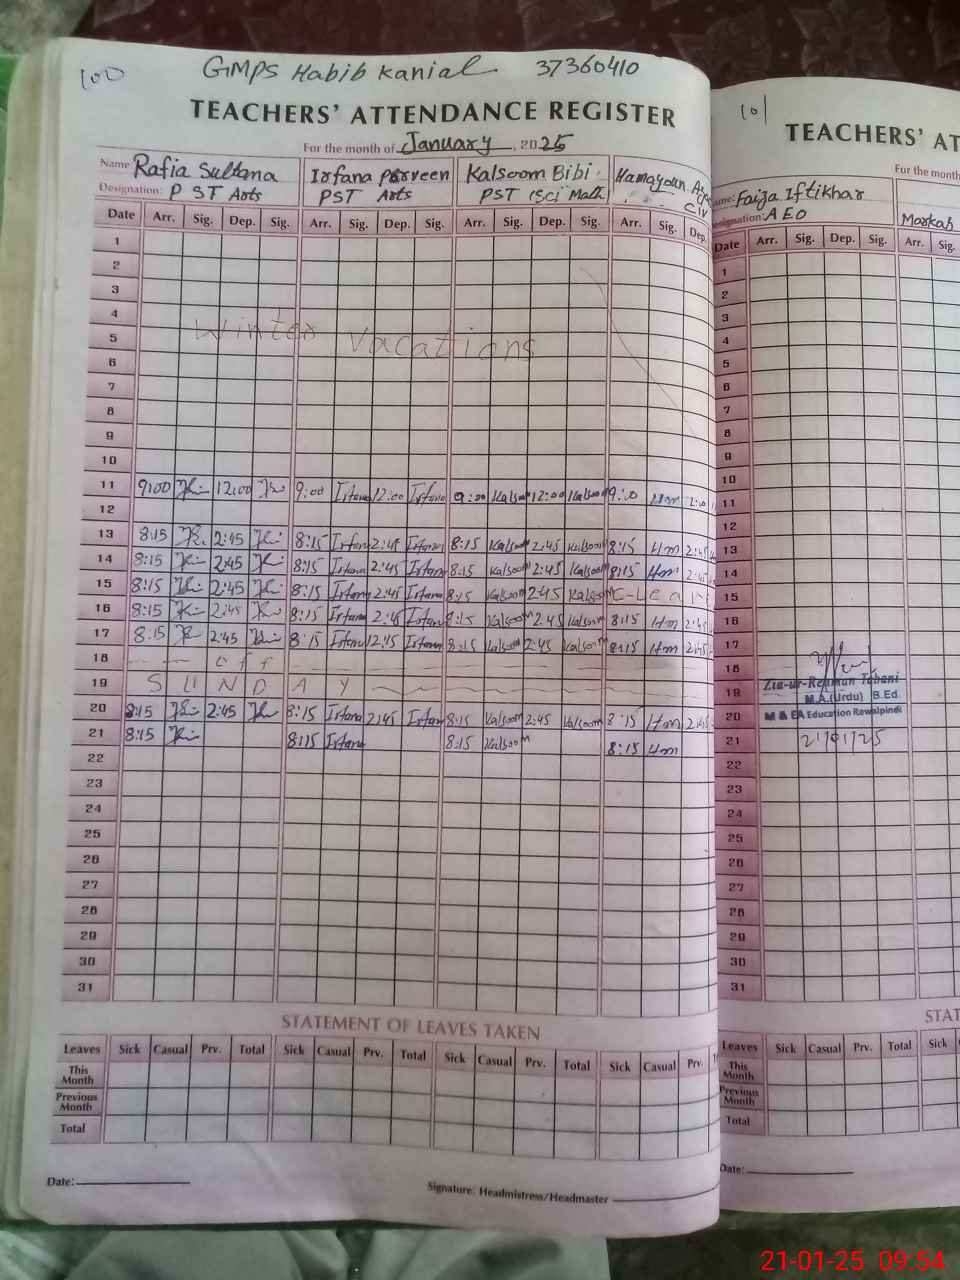 100
GMPS Habib Kanial 37360410
TEACHERS' ATTENDANCE REGISTER
For the month of January, 2025
Name: Rafia Sultana Irfana Parveen Kalsoom Bibi Hamayoun
Designation: PST Arts PST Arts PST (Sci Math) C IV
Date Arr. Sig. Dep. Sig. Arr. Sig. Dep. Sig. Arr. Sig. Dep. Sig. Arr. Sig. Dep.
1
2
3
4
Winter Vacations
5
6
7
8
9
10
11 9:00 12:00 9:00 Irfana 12:00 Irfana 9:00 Kalsoom 12:00 Kalsoom 9:00 Hm
12
13 8:15 2:45 8:15 Irfana 2:45 Irfana 8:15 Kalsoom 2:45 Kalsoom 8:15 Hm 2:45
14 8:15 2:45 8:15 Irfana 2:45 Irfana 8:15 Kalsoom 2:45 Kalsoom 8:15 Hm 2:45
15 8:15 2:45 8:15 Irfana 2:45 Irfana 8:15 Kalsoom 2:45 Kalsoom C-Leave
16 8:15 2:45 8:15 Irfana 2:45 Irfana 8:15 Kalsoom 2:45 Kalsoom 8:15 Hm 2:45
17 8:15 2:45 8:15 Irfana 2:45 Irfana 8:15 Kalsoom 2:45 Kalsoom 8:15 Hm 2:45
18 off
19 SUNDAY
20 8:15 2:45 8:15 Irfana 2:45 Irfana 8:15 Kalsoom 2:45 Kalsoom 8:15 Hm 2:45
21 8:15 8:15 Irfana 8:15 Kalsoom 8:15 Hm
22
23
24
25
26
27
28
29
30
31
STATEMENT OF LEAVES TAKEN
Leaves Sick Casual Prv. Total Sick Casual Prv. Total Sick Casual Prv. Total Sick Casual Prv.
This Month
Previous Month
Total
Date:
Signature: Headmistress/Headmaster
101
TEACHERS' AT
For the month
Name: Faiza Iftikhar
Designation: AEO Markab
Date Arr. Sig. Dep. Sig. Arr. Sig.
1
2
3
4
5
6
7
8
9
10
11
12
13
14
15
16
17
18
Zia-ur-Rehman Tabani
19 M.A.(Urdu) B.Ed.
20 M & EA Education Rawalpindi
21 21/01/25
22
23
24
25
26
27
28
29
30
31
STAT
Leaves Sick Casual Prv. Total Sick
This Month
Previous Month
Total
Date:
21-01-25 09:54